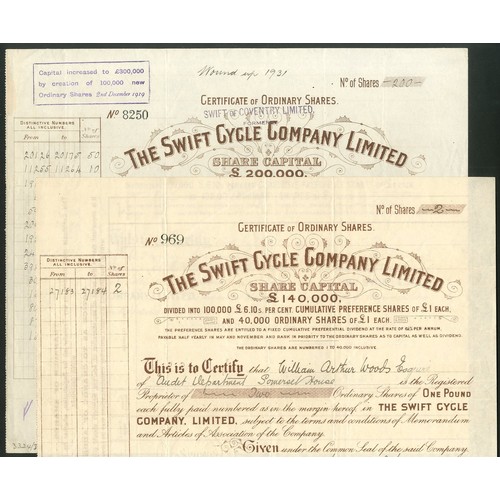 Capital increased to £300,000
by creation of 100,000 new
Ordinary Shares 2nd December 1919
Wound up 1931
No of Shares 200
No 8250
CERTIFICATE OF ORDINARY SHARES.
SWIFT OF COVENTRY LIMITED.
FORMERLY
THE SWIFT CYCLE COMPANY LIMITED
SHARE CAPITAL
£200,000.
DISTINCTIVE NUMBERS
ALL INCLUSIVE.
No of
Shares
From to
20126 20175 50
11255 11264 10
No of Shares 2
CERTIFICATE OF ORDINARY SHARES.
No 969
THE SWIFT CYCLE COMPANY LIMITED
SHARE CAPITAL
£140,000,
DIVIDED INTO 100,000 £6.10s. PER CENT. CUMULATIVE PREFERENCE SHARES OF £1 EACH,
AND 40,000 ORDINARY SHARES OF £1 EACH.
THE PREFERENCE SHARES ARE ENTITLED TO A FIXED CUMULATIVE PREFERENTIAL DIVIDEND AT THE RATE OF 6½% PER ANNUM.
PAYABLE HALF YEARLY IN MAY AND NOVEMBER, AND RANK IN PRIORITY TO THE ORDINARY SHARES AS TO CAPITAL AS WELL AS DIVIDEND.
THE ORDINARY SHARES ARE NUMBERED 1 TO 40,000 INCLUSIVE.
DISTINCTIVE NUMBERS
ALL INCLUSIVE.
No of
Shares
From to
27183 27184 2
This is to Certify that William Arthur Woods Esquire
of Audit Department Somerset House is the Registered
Proprietor of Two Ordinary Shares of ONE POUND
each fully paid numbered as in the margin hereof, in THE SWIFT CYCLE
COMPANY, LIMITED, subject to the terms and conditions of Memorandum
and Articles of Association of the Company.
Given under the Common Seal of the said Company.